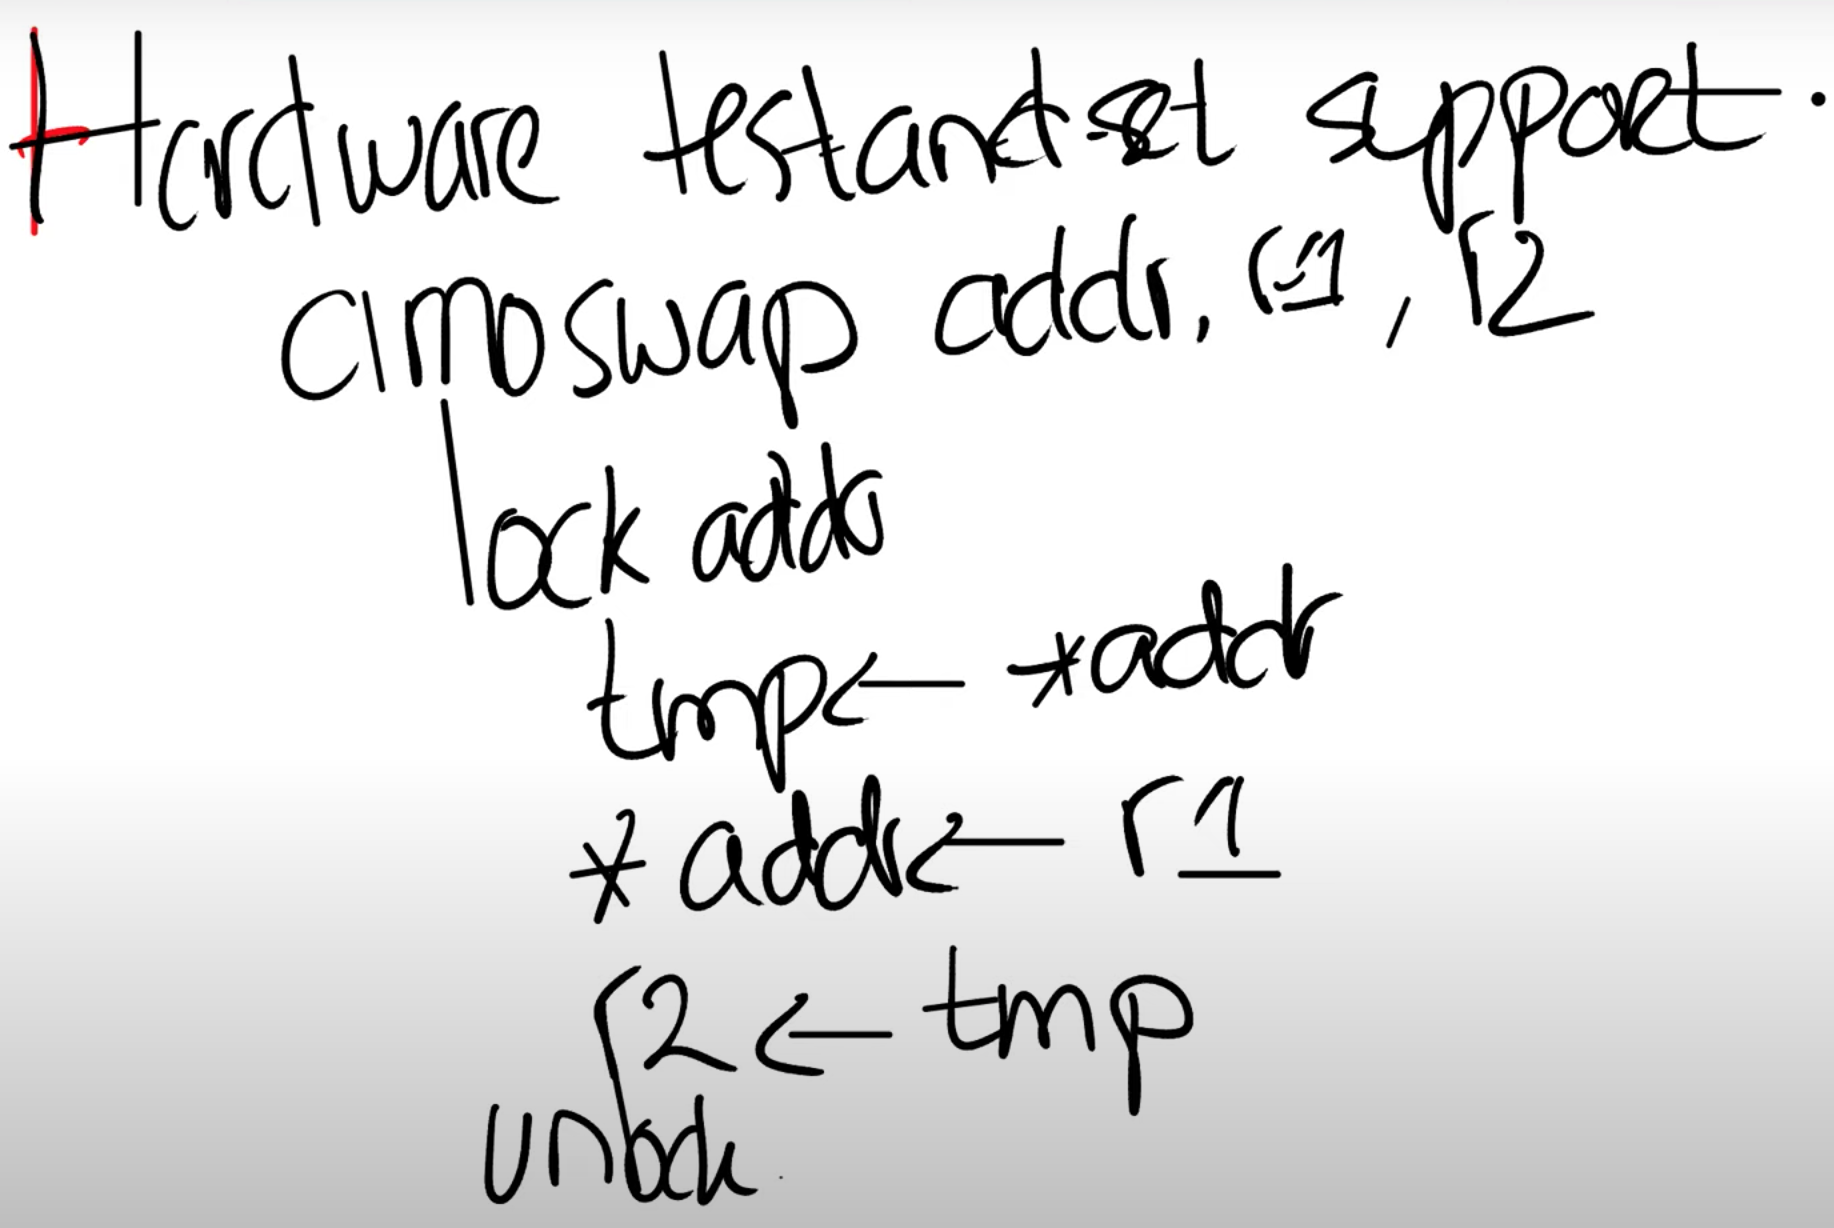 Hardware test and set support.
amoswap addr, r1, r2
lock addr
tmp ← *addr
*addr ← r1
r2 ← tmp
unlock